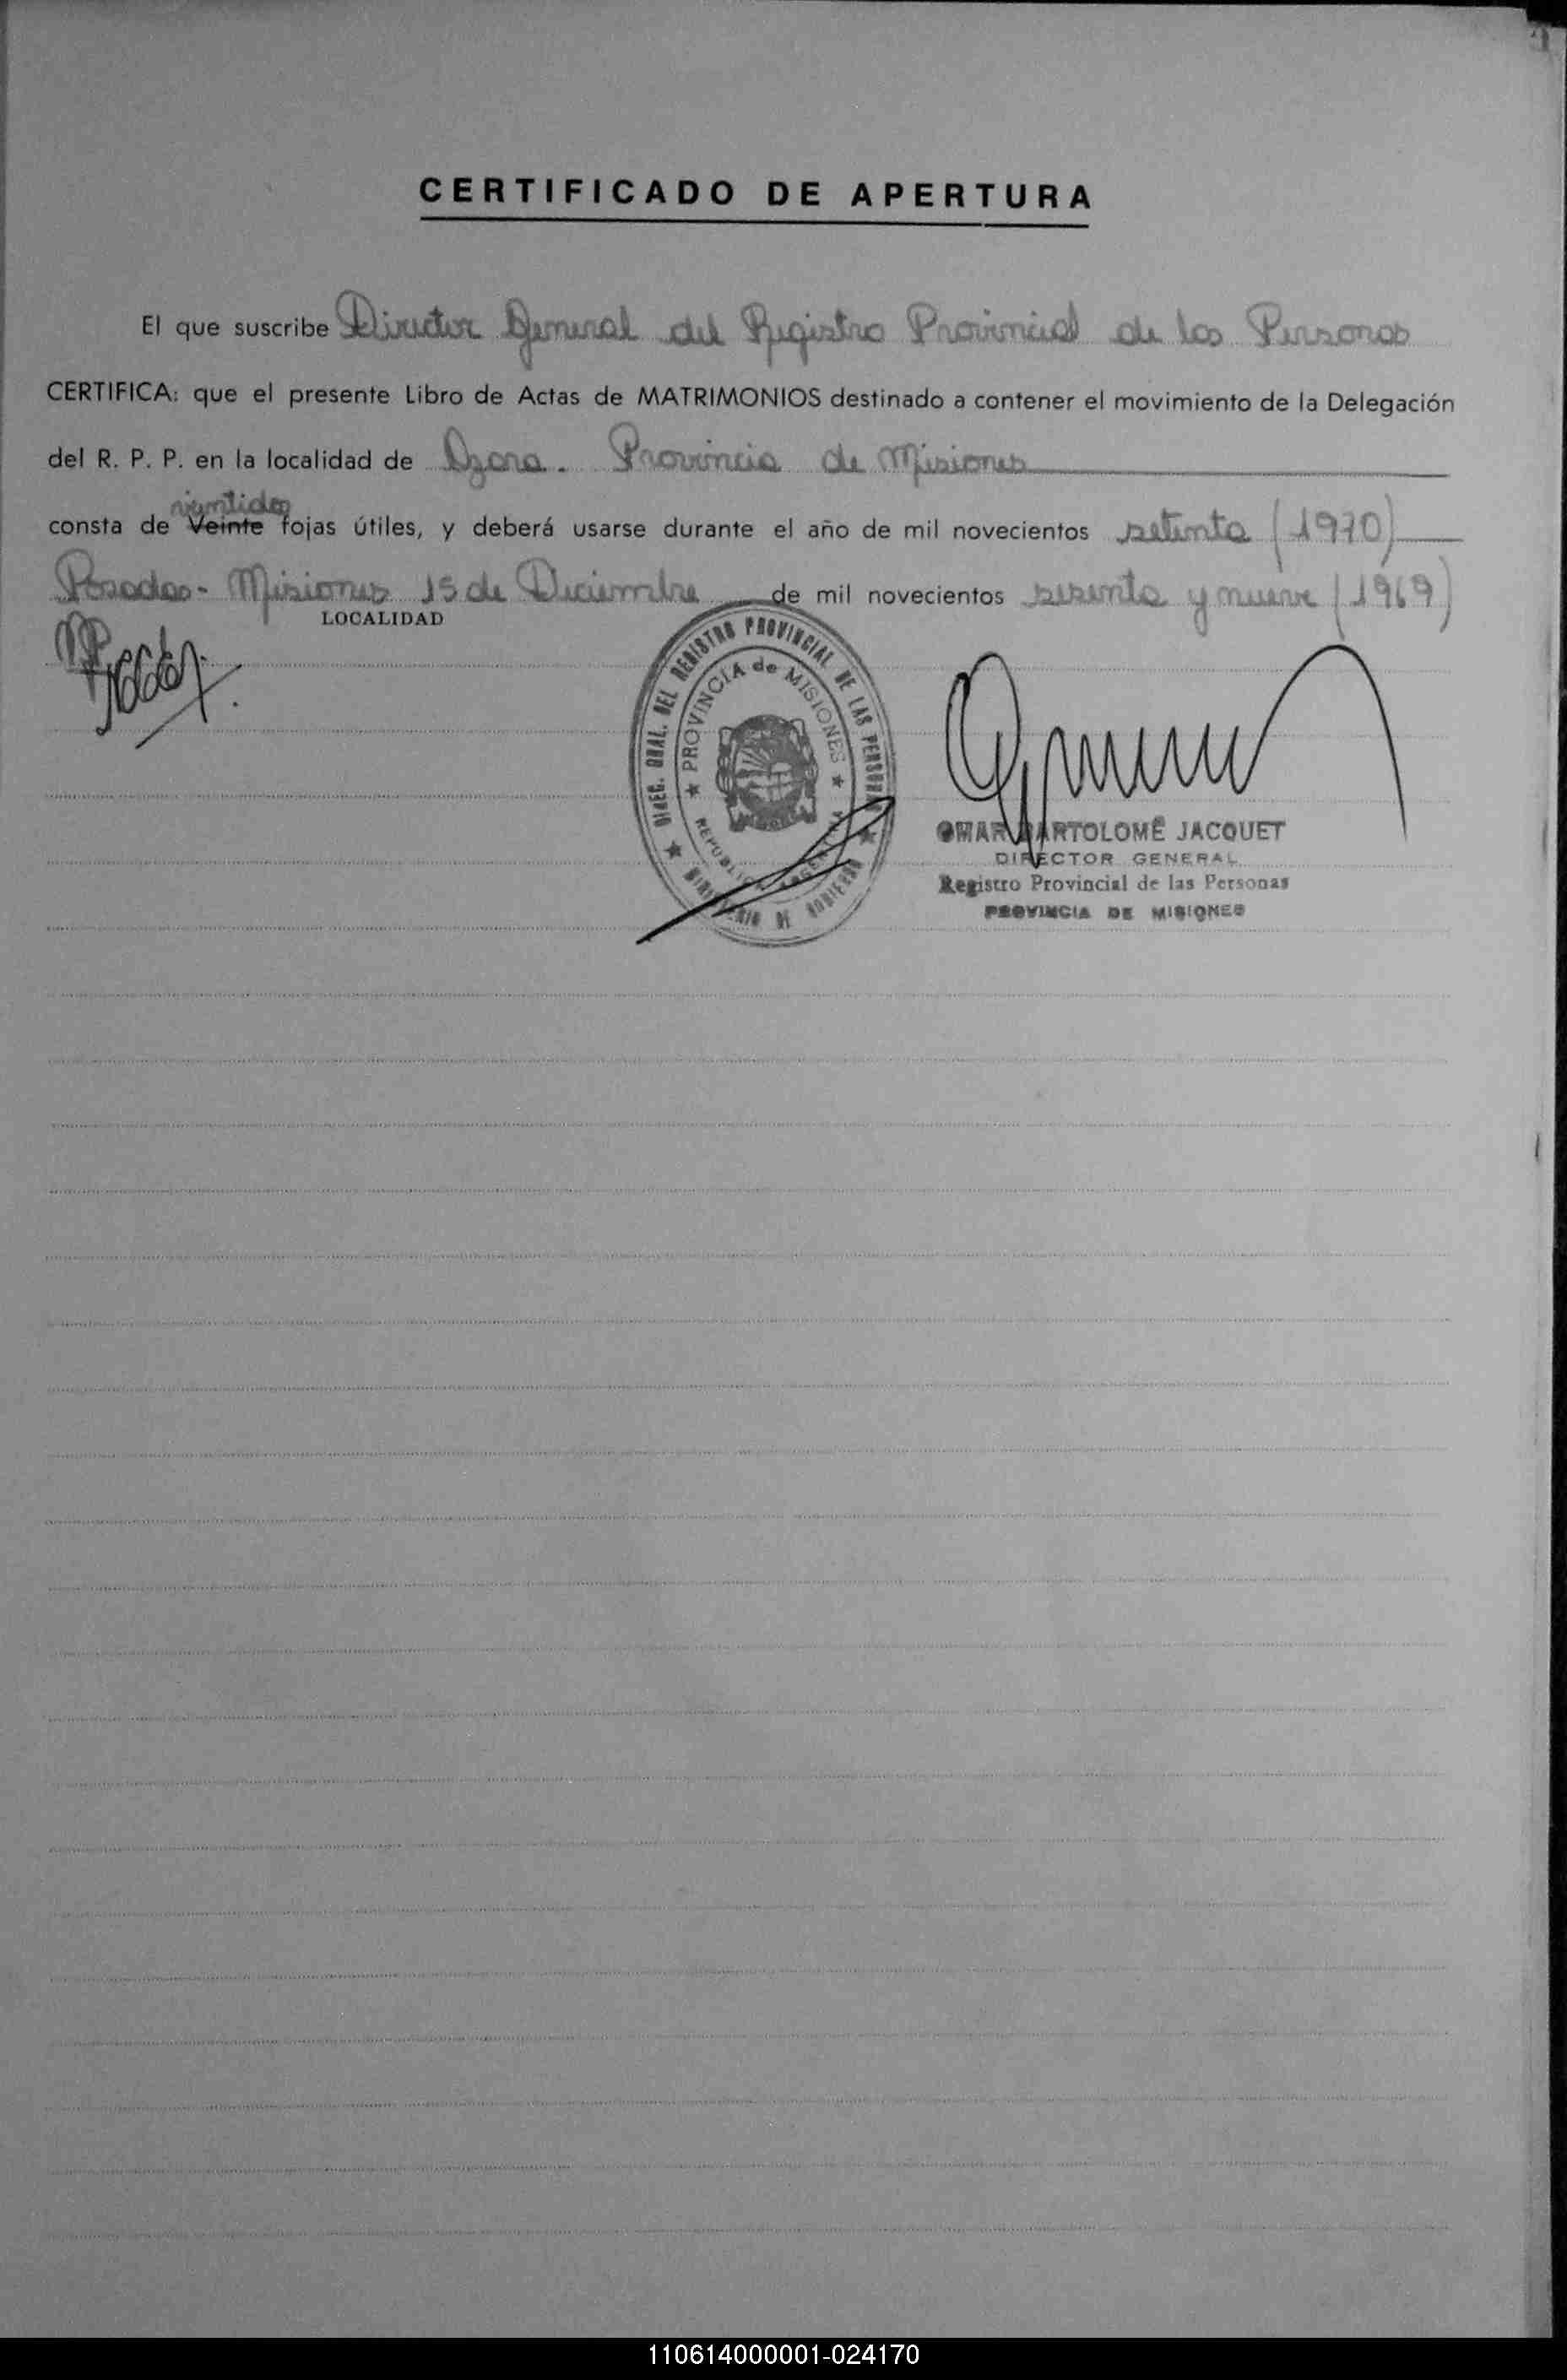 CERTIFICADO DE APERTURA
El que suscribe Director General del Registro Provincial de las Personas
CERTIFICA: que el presente Libro de Actas de MATRIMONIOS destinado a contener el movimiento de la Delegación
del R. P. P. en la localidad de Azara. Provincia de Misiones
vientidos
consta de Veinte fojas útiles, y deberá usarse durante el año de mil novecientos setenta (1970)
Posadas- Misiones 15 de Diciembre de mil novecientos sesenta y nueve (1969)
LOCALIDAD
DIREC. GRAL. DEL REGISTRO PROVINCIAL DE LAS PERSONAS
★ PROVINCIA de MISIONES ★
REPUBLICA
★ MINISTERIO DE GOBIERNO ★
OMAR BARTOLOMÉ JACQUET
DIRECTOR GENERAL
Registro Provincial de las Personas
PROVINCIA DE MISIONES
110614000001-024170